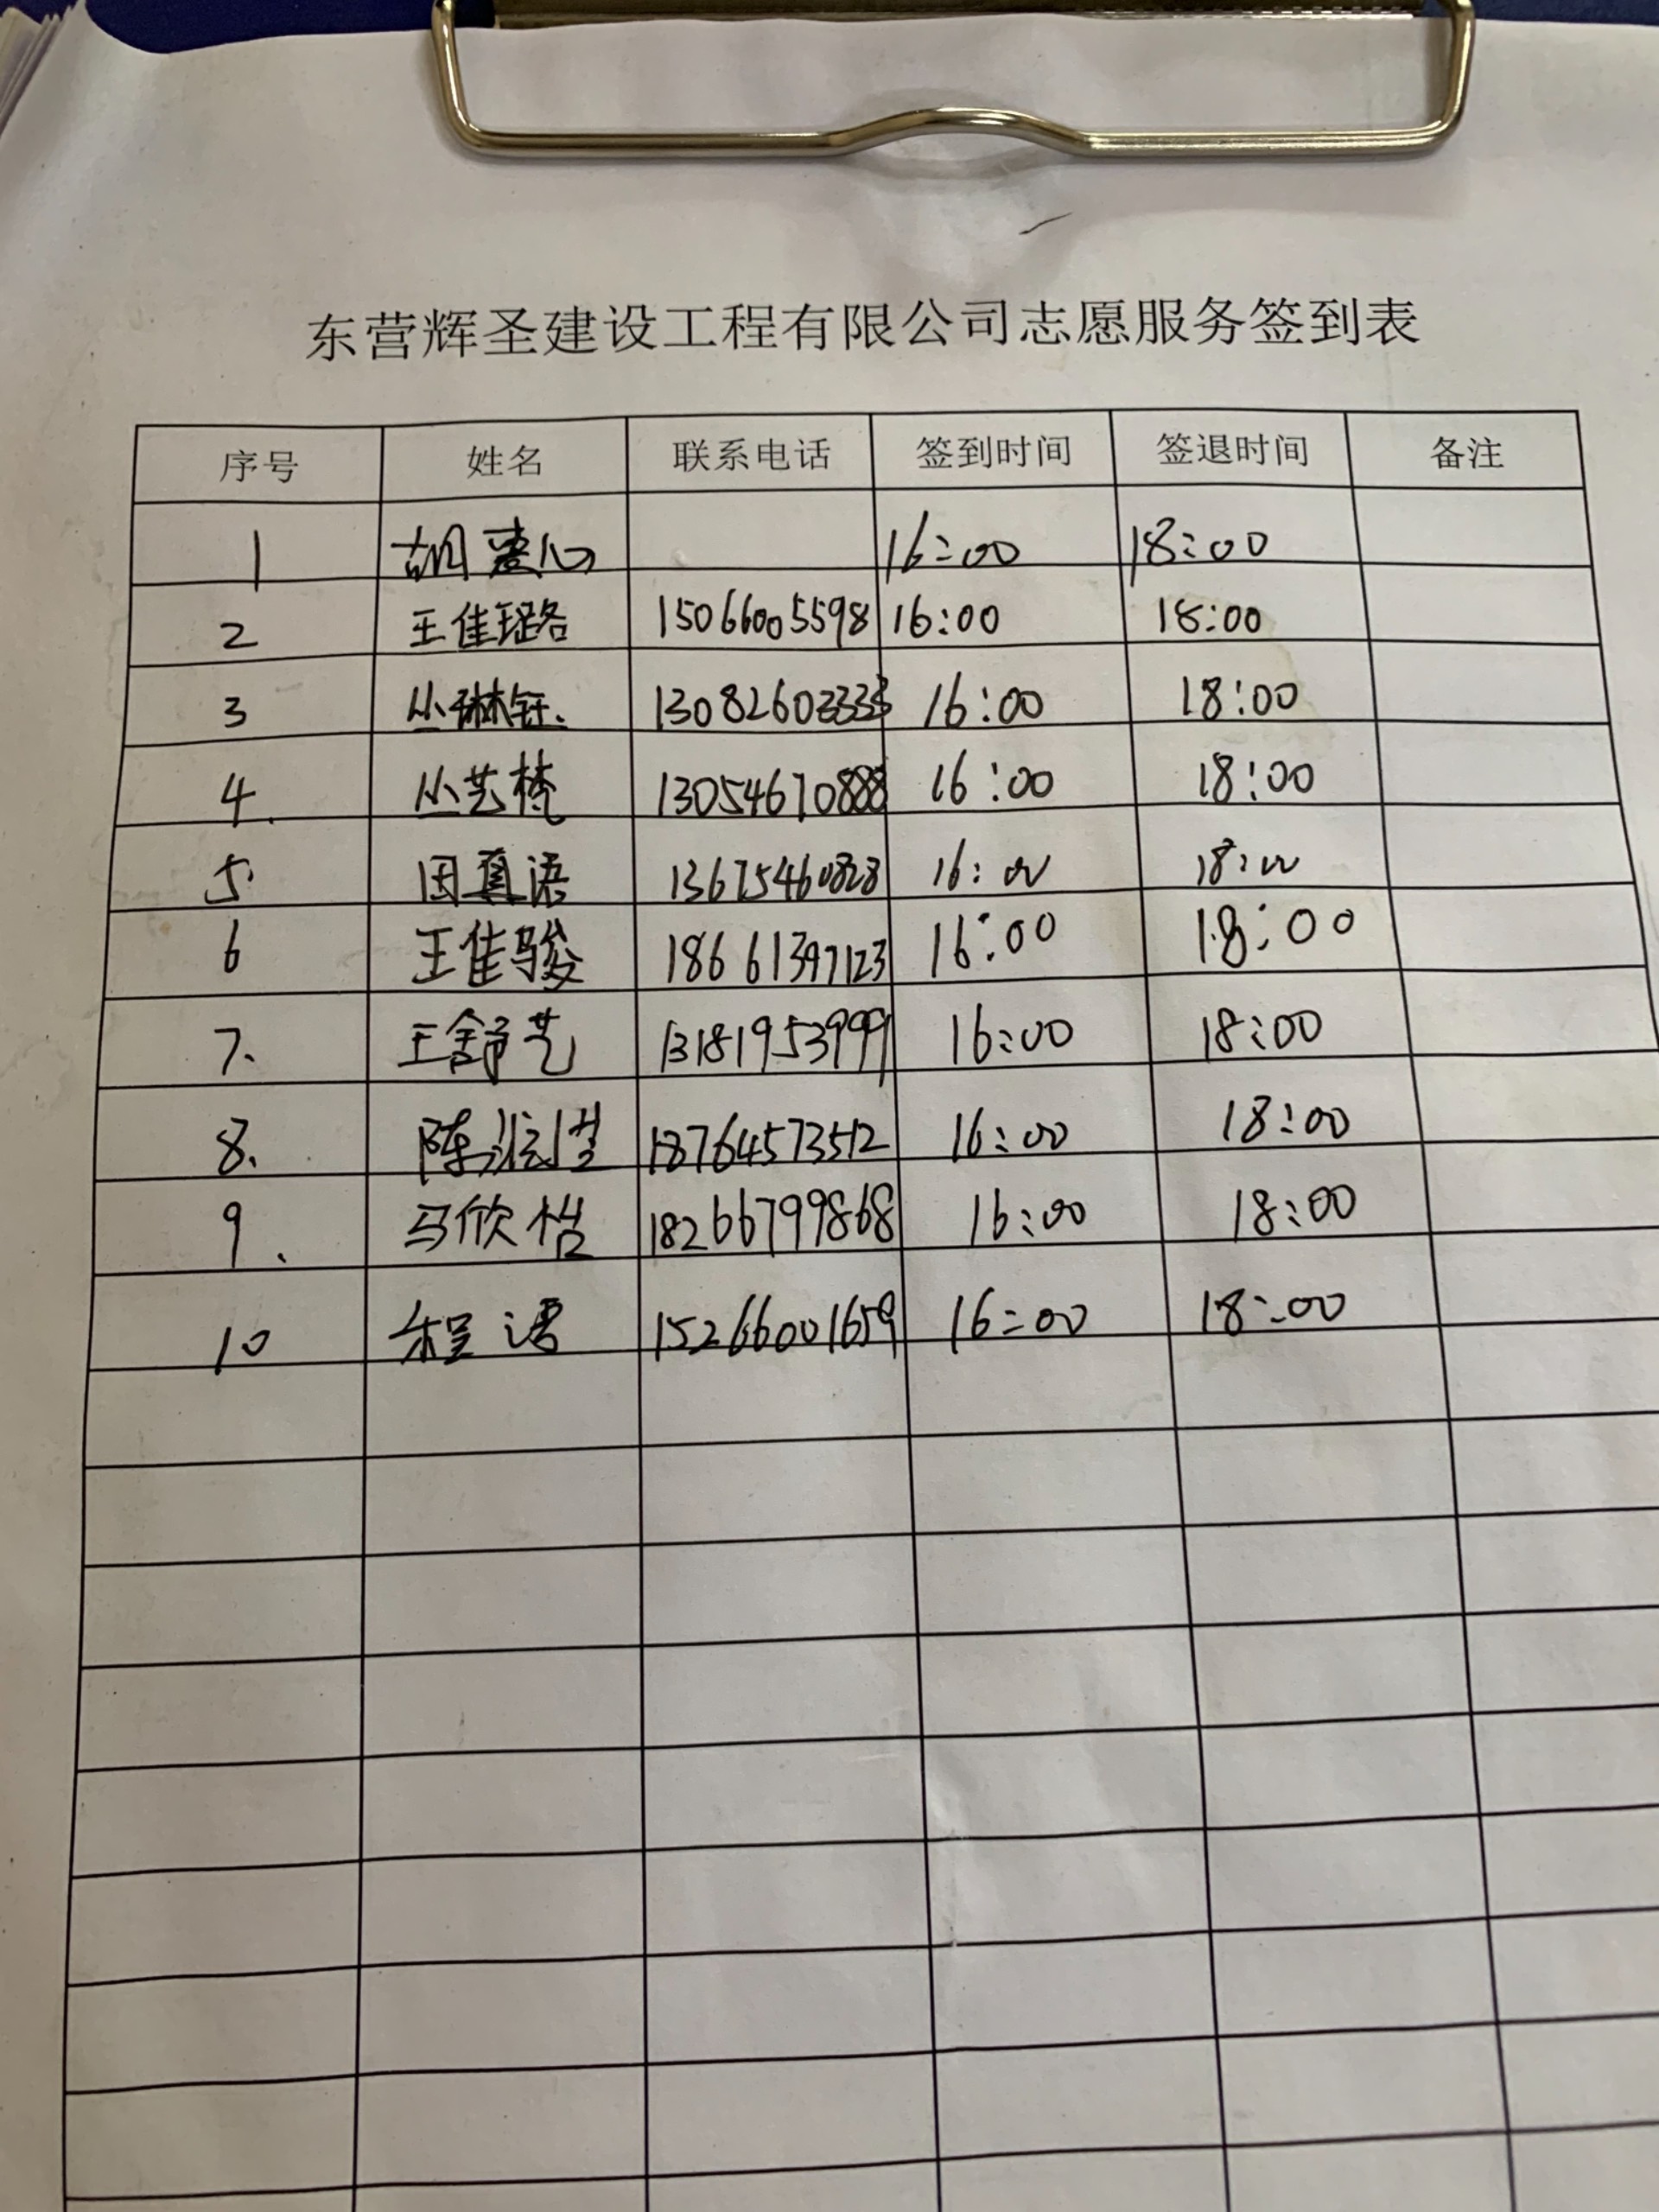 东营辉圣建设工程有限公司志愿服务签到表
序号 姓名 联系电话 签到时间 签退时间 备注
1 胡爱心 16:00 18:00
2 王佳璐 15066005598 16:00 18:00
3 丛琳钰 13082603333 16:00 18:00
4 丛艺梵 13054670888 16:00 18:00
5 田真语 13675460828 16:00 18:00
6 王佳骏 18661397123 16:00 18:00
7、 王舒艺 13181953999 16:00 18:00
8、 陈 18764573512 16:00 18:00
9、 马欣怡 18266799868 16:00 18:00
10 程语 15266001659 16:00 18:00